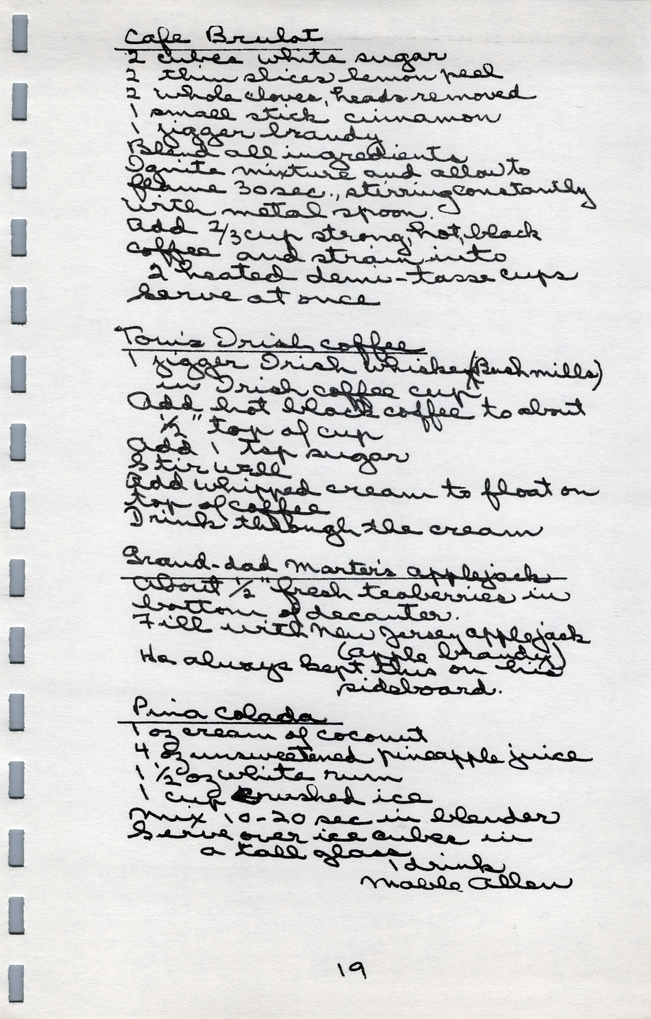 Cafe Brulot
2 cubes white sugar
2 thin slices lemon peel
2 whole cloves, heads removed
1 small stick cinnamon
1 jigger brandy
Blend all ingredients
Ignite mixture and allow to
flame 30 sec., stirring constantly
with metal spoon.
Add 2/3 cup strong, hot, black
coffee and strain into
2 heated demi-tasse cups
Serve at once
Tom's Irish coffee
1 jigger Irish whiskey (Bushmills)
in Irish coffee cup
Add hot black coffee to about
1/2" top of cup
Add 1 tsp sugar
Stir well
Add whipped cream to float on
top of coffee
Drink through the cream
Grand-dad Marter's applejack
About 1/2" fresh teaberries in
bottom of decanter.
Fill with New Jersey applejack
(apple brandy)
He always kept this on his
sideboard.
Pina Colada
1 oz cream of coconut
4 oz unsweetened pineapple juice
1 1/2 oz white rum
1 cup crushed ice
Mix 10-20 sec in blender
Serve over ice cubes in
a tall glass
1 drink
Mable Allen
19